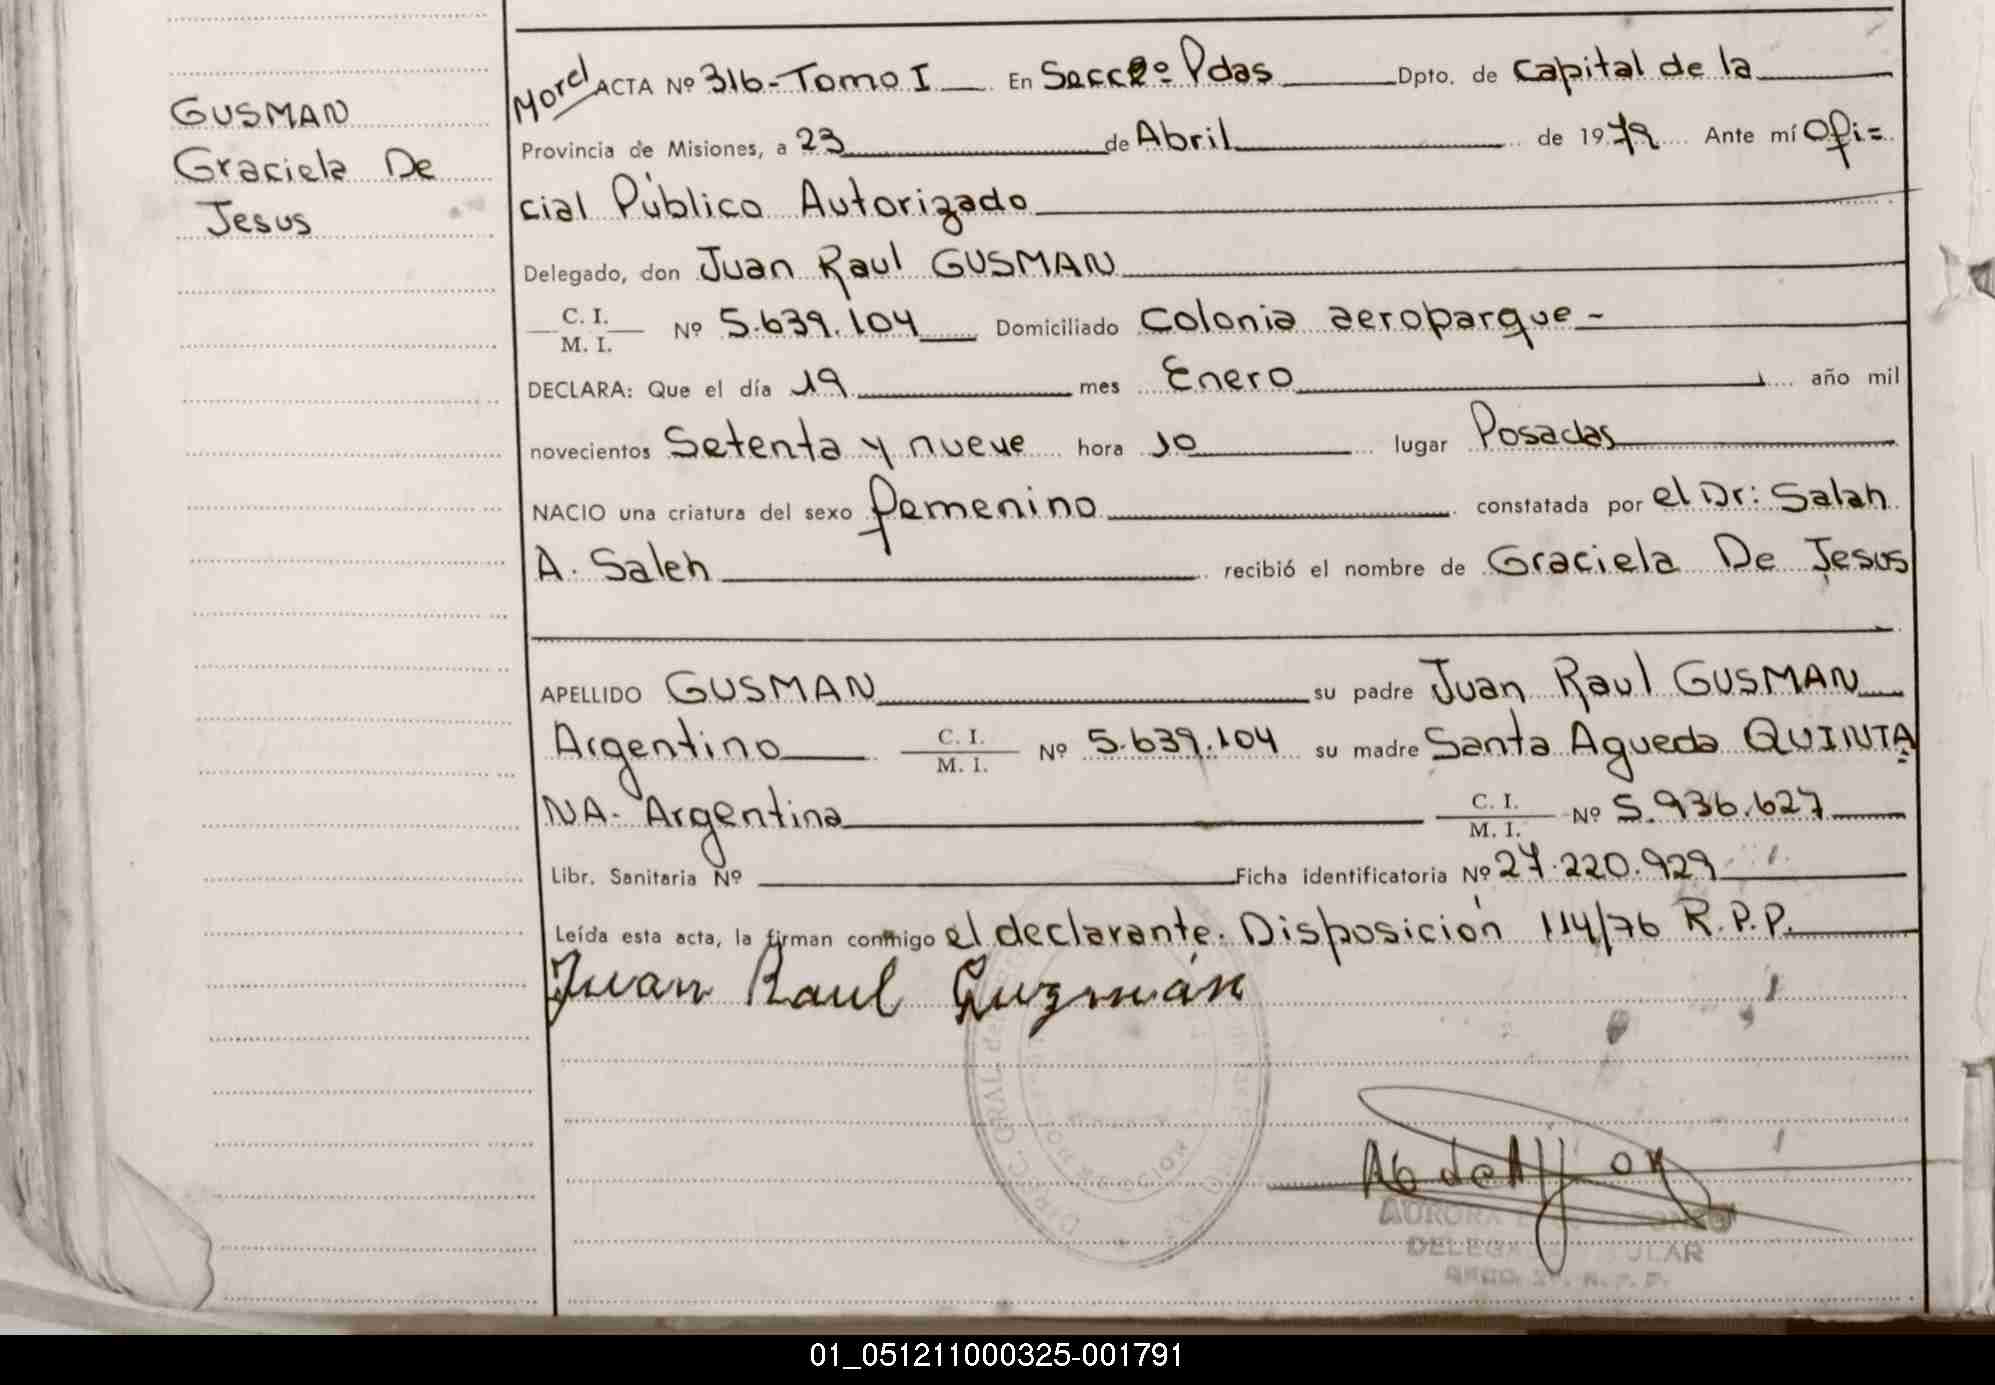 GUSMAN
Graciela De
Jesus
Morel
ACTA Nº 316-Tomo I En Secc2º Pdas Dpto. de Capital de la
Provincia de Misiones, a 23 de Abril de 1979 Ante mí Ofi=
cial Público Autorizado
Delegado, don Juan Raul GUSMAN
C. I.
M. I. Nº 5.639.104 Domiciliado Colonia aeroparque-
DECLARA: Que el día 19 mes Enero año mil
novecientos Setenta y nueve hora 10 lugar Posadas
NACIO una criatura del sexo femenino constatada por el Dr: Salah
A. Saleh recibió el nombre de Graciela De Jesus
APELLIDO GUSMAN su padre Juan Raul GUSMAN
Argentino C. I.
M. I. Nº 5.639.104 su madre Santa Agueda QUINTA=
NA- Argentina C. I.
M. I. Nº 5.936.627
Libr. Sanitaria Nº Ficha identificatoria Nº 27.220.929
Leída esta acta, la firman conmigo el declarante. Disposición 114/76 R.P.P.
Juan Raul Guzmán
DIREC. GRAL de
AURORA
DELEG
01_051211000325-001791